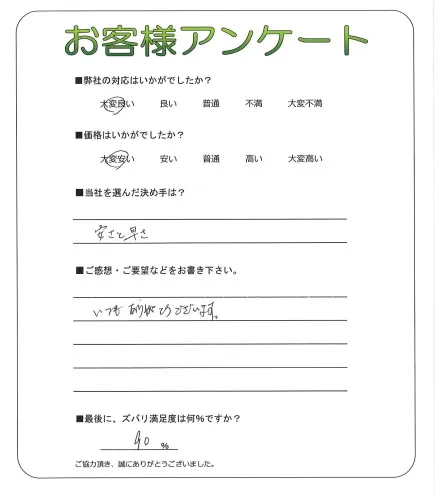 お客様アンケート
■弊社の対応はいかがでしたか？
大変良い 良い 普通 不満 大変不満
■価格はいかがでしたか？
大変安い 安い 普通 高い 大変高い
■当社を選んだ決め手は？
安さと早さ
■ご感想・ご要望などをお書き下さい。
いつもありがとうございます。
■最後に、ズバリ満足度は何％ですか？
90 ％
ご協力頂き、誠にありがとうございました。